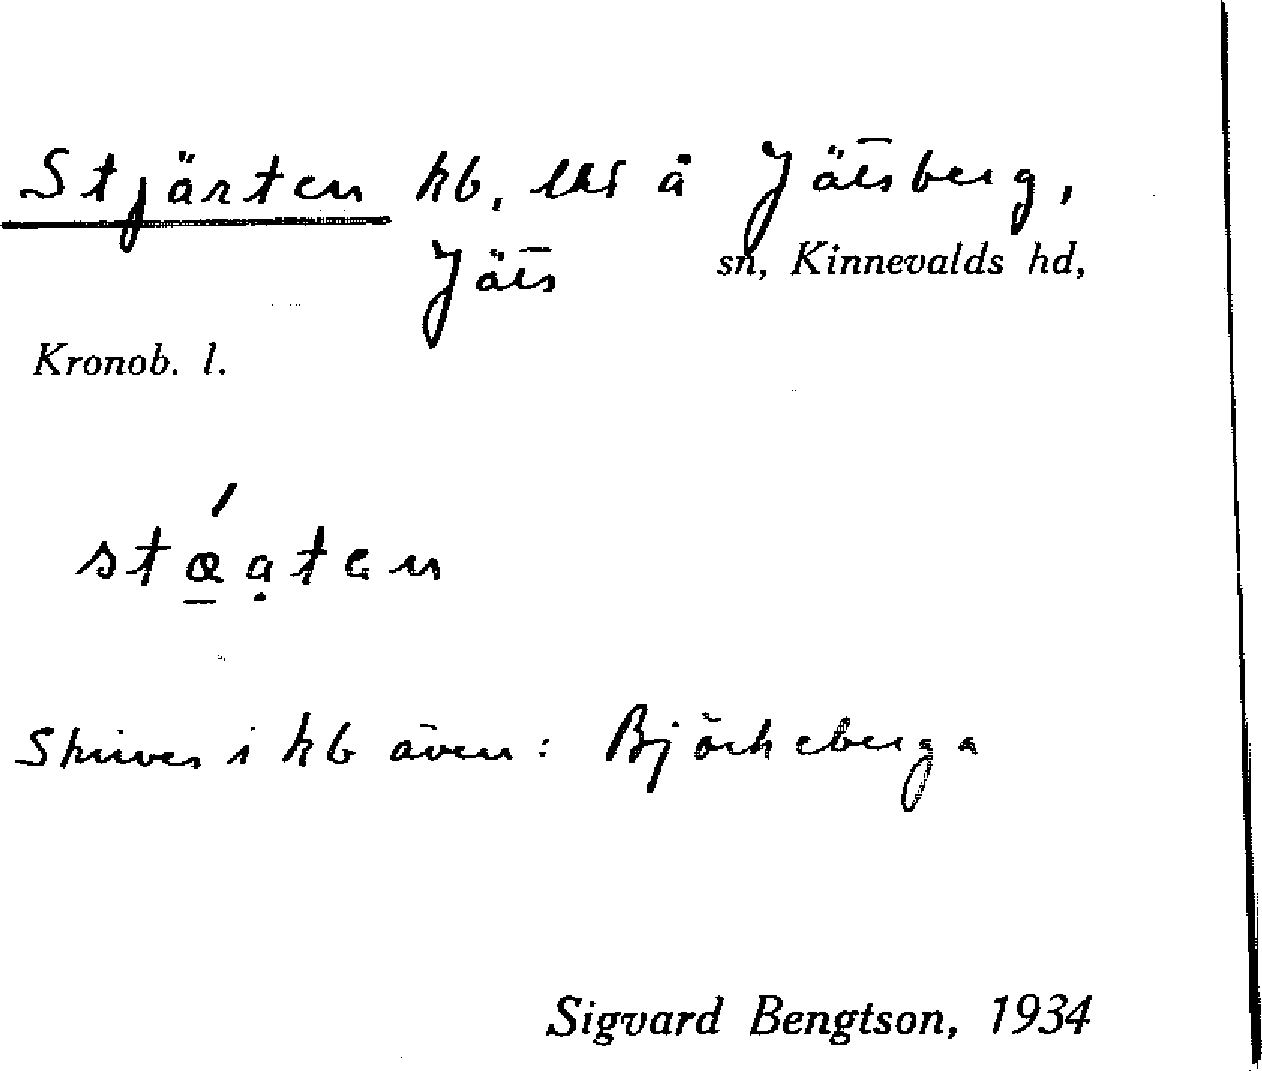 Stjärten kb, lht å Jätsberg,
Jäts sn, Kinnevalds hd,
Kronob. l.
Skrives i kb även: Björkeberga
Sigvard Bengtson, 1934